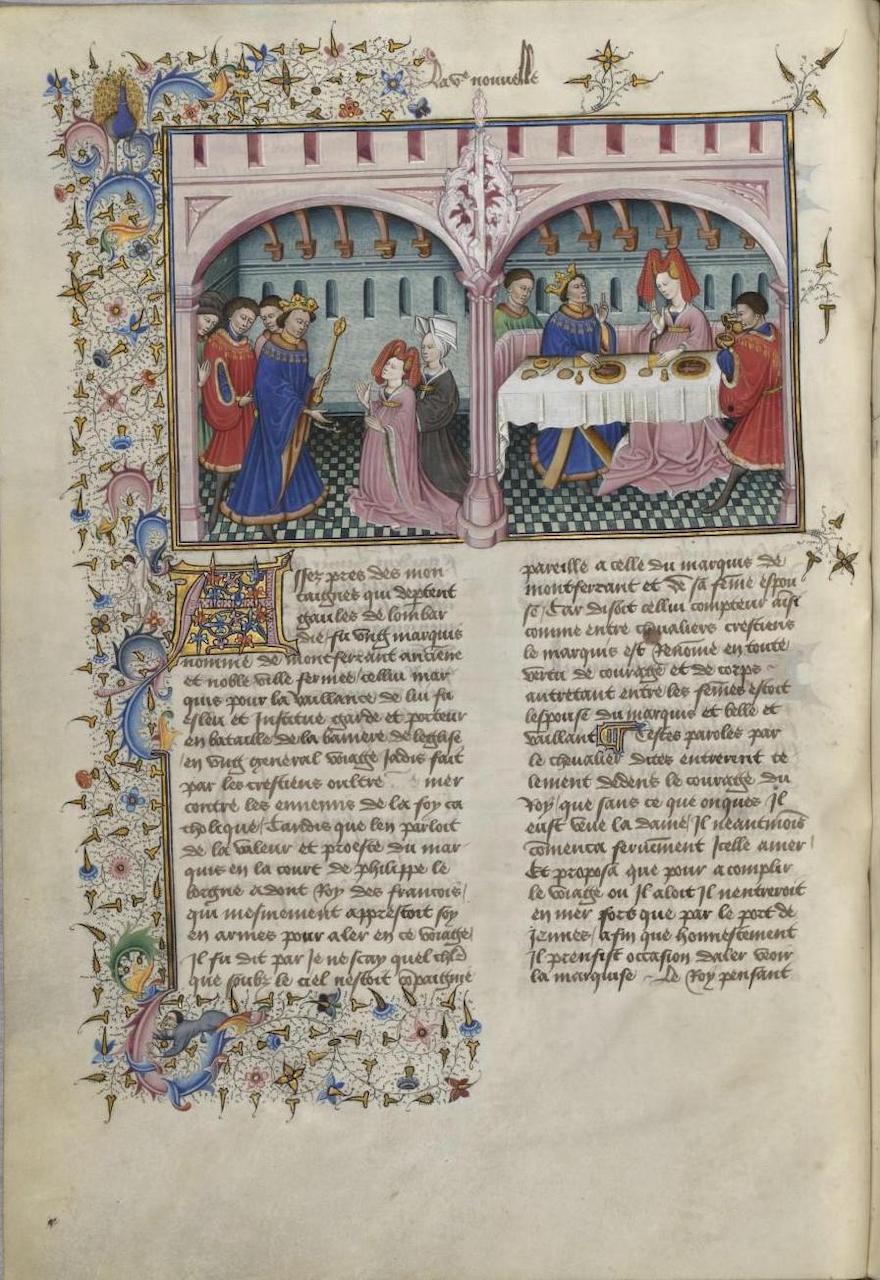 La v^e nouvelle
Assez pres des mon
taignes qui deptent
gaules de lombar
die fu ung marquis
nomme de montferrant ancie͞ne
et noble ville fermee / cellui mar
quis pour la vaillance de lui fu
esleu et Institue garde et porteur
en bataille de la baniere de leglise
en ung general voiage Jadis fait
par les crestiens oultre mer
contre les ennemis de la foy ca
tholique / Tandis que len parloit
de la valeur et proesse du mar
quis en la court de philippe le
borgne adont Roy des francois /
qui mesmement apprestoit soy
en armes pour aler en ce voiage /
Il fu dit par Je ne scay quel chl̅r
que soubz le ciel nestoit co̅paignie
pareille a celle du marquis de
montferrant et de sa fe̅me espou
se / Car disoit cellui compteur ai̅si
comme entre chevaliers crestiens
le marquis est Renome en toute
vertu de courage et de corps
autretant entre les fe̅mes estoit
lespouse du marquis et belle et
vaillant Cestes paroles par
le chevalier dites entrerent te
lement dedens le courage du
Roy / que sans ce que onques Il
eust veue la dame / Il neantmois̅
come̅ca feru̅ment Icelle amer /
Et proposa que pour acomplir
le voiage ou Il aloit Il nentreroit
en mer fors que par le port de
Jennes / afin que honnestement
Il prensist occasion daler veoir
la marquise Le Roy pensant